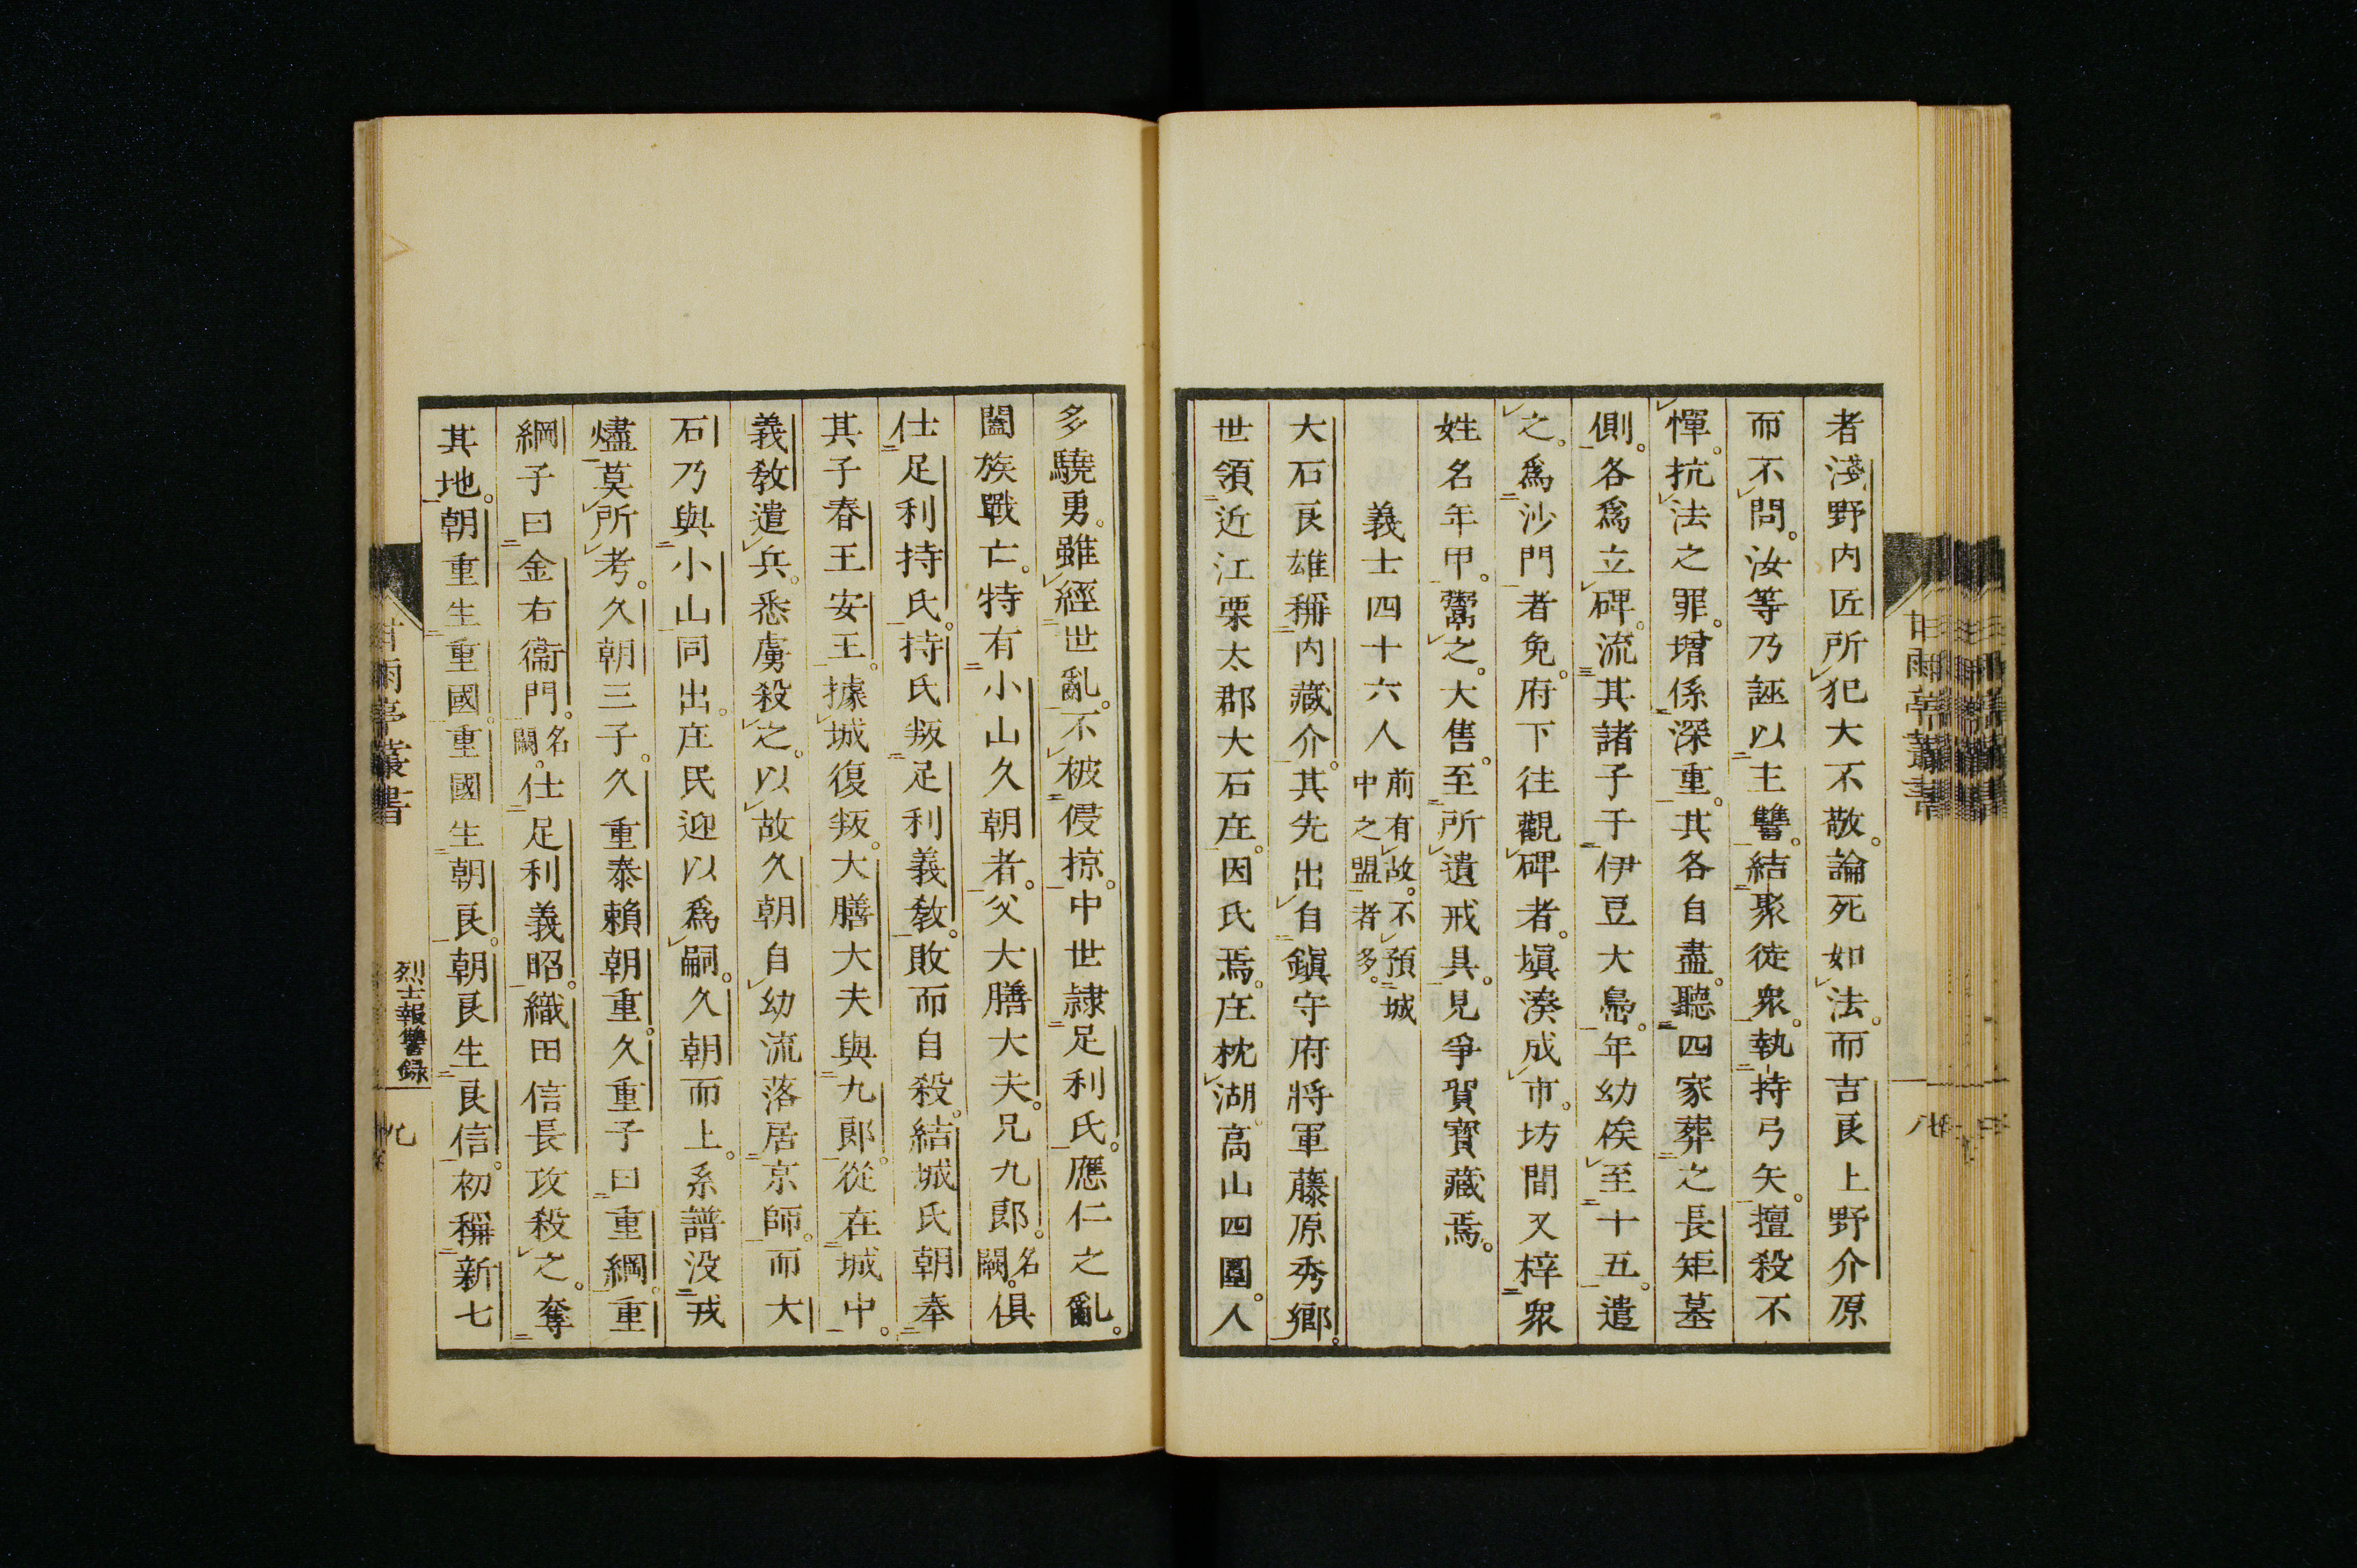 者淺野内匠所犯大不敬。論死如法。而吉良上野介原
而不問。汝等乃誣以主讐。結聚徒衆。執持弓矢。擅殺不
憚。抗法之罪。增係深重。其各自盡。聽四家葬之長矩墓
側。各爲立碑。流其諸子于伊豆大島。年幼俟至十五。遣
之。爲沙門者免。府下往觀碑者。塡湊成市。坊間又梓衆
姓名年甲。鬻之。大售。至所遺戒具。見爭買寶藏焉。
義士四十六人 前有故。不預城
中之盟者多。
大石良雄稱内藏介。其先出自鎭守府將軍藤原秀鄉。
世領近江栗太郡大石庄。因氏焉。庄枕湖。高山四圍。人
多驍勇。雖經世亂。不被侵掠。中世隷足利氏。應仁之亂。
闔族戰亡。特有小山久朝者。父大膳大夫。兄九郎。名
闕。俱
仕足利持氏。持氏叛足利義敎。敗而自殺。結城氏朝奉
其子春王安王。據城復叛。大膳大夫與九郎。從在城中。
義敎遣兵。悉虜殺之。以故久朝自幼流落居京師。而大
石乃與小山同出。庄民迎以爲嗣。久朝而上。系譜沒戎
燼莫所考。久朝三子。久重泰賴朝重。久重子曰重綱。重
綱子曰金右衞門。名
闕。仕足利義昭。織田信長攻殺之。奪
其地。朝重生重國。重國生朝良。朝良生良信。初稱新七
甘雨亭叢書
八
甘雨亭叢書
烈士報讐録
九